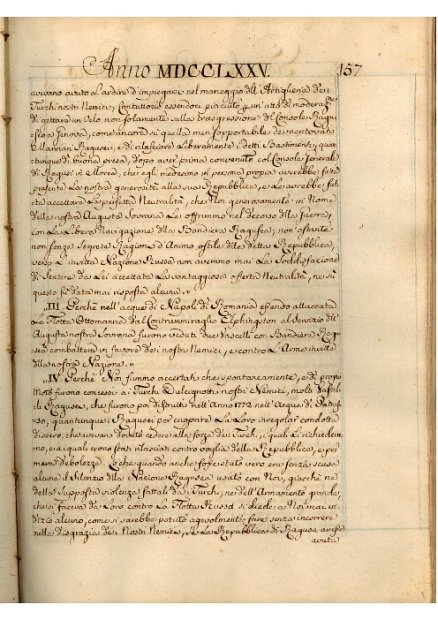 Anno MDCCLXXV. 157
avevano avuto l'ardire d'impiegare nel maneggio dell'Artiglieria dei
Turchi nostri Nemici; Contuttociò essendoci piaciuto p un'atto di moderazne
di gettare un Velo non solamente sulla trasgressione del Console Ragu
seo a Genova, come ancora su quella men sopportabile dei mentovati
Marinari Ragusei, e di rilasciare liberamente i detti Bastimenti, quan
tunque di buona presa, dopo aver prima convenuto col Console Generale
di Ragusi in Livorno, che egli medesimo in persona propria avrebbe fatta
presente la nostra generosità alla sua Repubblica, e Le avrebbe fat
ta accettare la perfetta Neutralità, che Noi generosamente in Nome
della nostra Augusta Sovrana Le offrimmo nel decorso della Guerra,
con la Libera Navigazione della Bandiera Ragusea; non ostante
non senza segrete Ragioni d'Animo ostile della detta Repubblica,
verso l'invitta Nazione Russa non avemmo mai la Soddisfazione
di sentire da Lei accettata la vantaggiosa offerta Neutralità, nè su
questo fu data mai risposta alcuna.
III. Perchè nell'acque di Napoli di Romania essendo attaccata
la Flotta Ottomanna dal Contrammiraglio Elphingston al servizio dell'
Augusta nostra Sovrana furono veduti due Vascelli con Bandiera Ragu
sea combattere in favore dei nostri Nemici, e contro l'Armi invitte
della nostra Nazione.
IV. Perchè Noi fummo accertati che spontaneamente, e di proprio
Moto furono concessi ai Turchi Dulcignotti nostri Nemici, molti Vascelli
di Ragusei, che furono poi distrutti nell'Anno 1772 nell'Acque di Patras
so, quantunque i Ragusei per cuoprire la loro irregolar condotta
dissero, che avevano dovuto cedere alla forza dei Turchi, i quali li richiedevano
no, ed i quali erano stati rilasciati contro voglia della Repubblica, e per
mera debolezza. Lo che quando anche fosse stato vero era senza scusa
alcuna il Silenzio della Nazione Ragusea usato con Noi, giacchè nè
della supposta violenza fattali dai Turchi, nè dell'Armamento grande,
che si faceva da Loro contro la Flotta Russa si diede a Noi mai in
dizio alcuno, come si sarebbe potuto agevolmente fare senza incorrere
nella disgrazia dei Nostri Nemici, se la Repubblica di Ragusa avesse